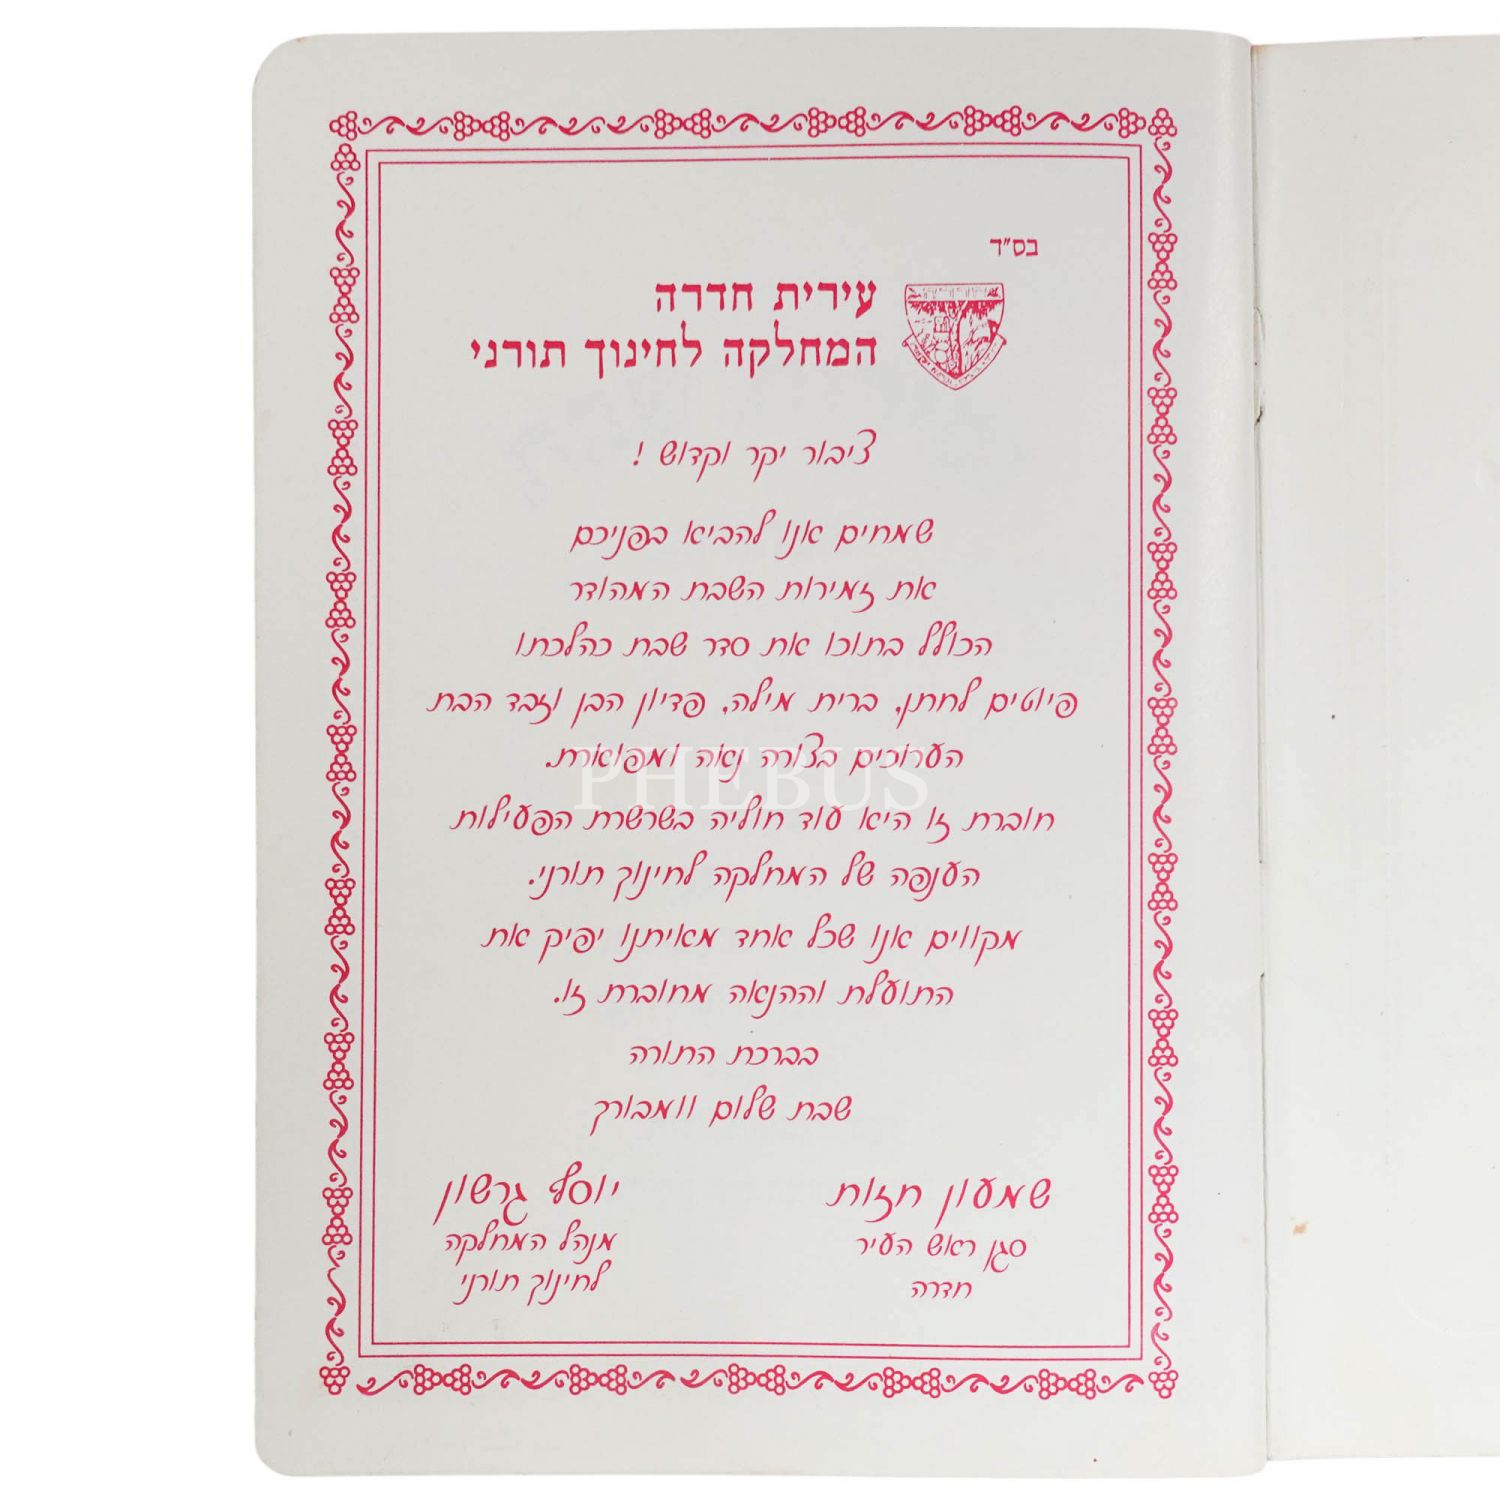 בס״ד
עירית חדרה
המחלקה לחינוך תורני
ציבור יקר וקדוש !
שמחים אנו להביא בפניכם
את זמירות השבת המהודר
הכולל בתוכו את סדר שבת כהלכתו
פיוטים לחתן, ברית מילה, פדיון הבן וזבד הבת
הערוכים בצורה נאה ומפוארת.
PHEBUS
חוברת זו היא עוד חוליה בשרשרת הפעילות
הענפה של המחלקה לחינוך תורני.
מקווים אנו שכל אחד מאיתנו יפיק את
התועלת וההנאה מחוברת זו.
בברכת התורה
שבת שלום וומבורך
שמעון חזות
סגן ראש העיר
חדרה
יוסף גרשון
מנהל המחלקה
לחינוך תורני